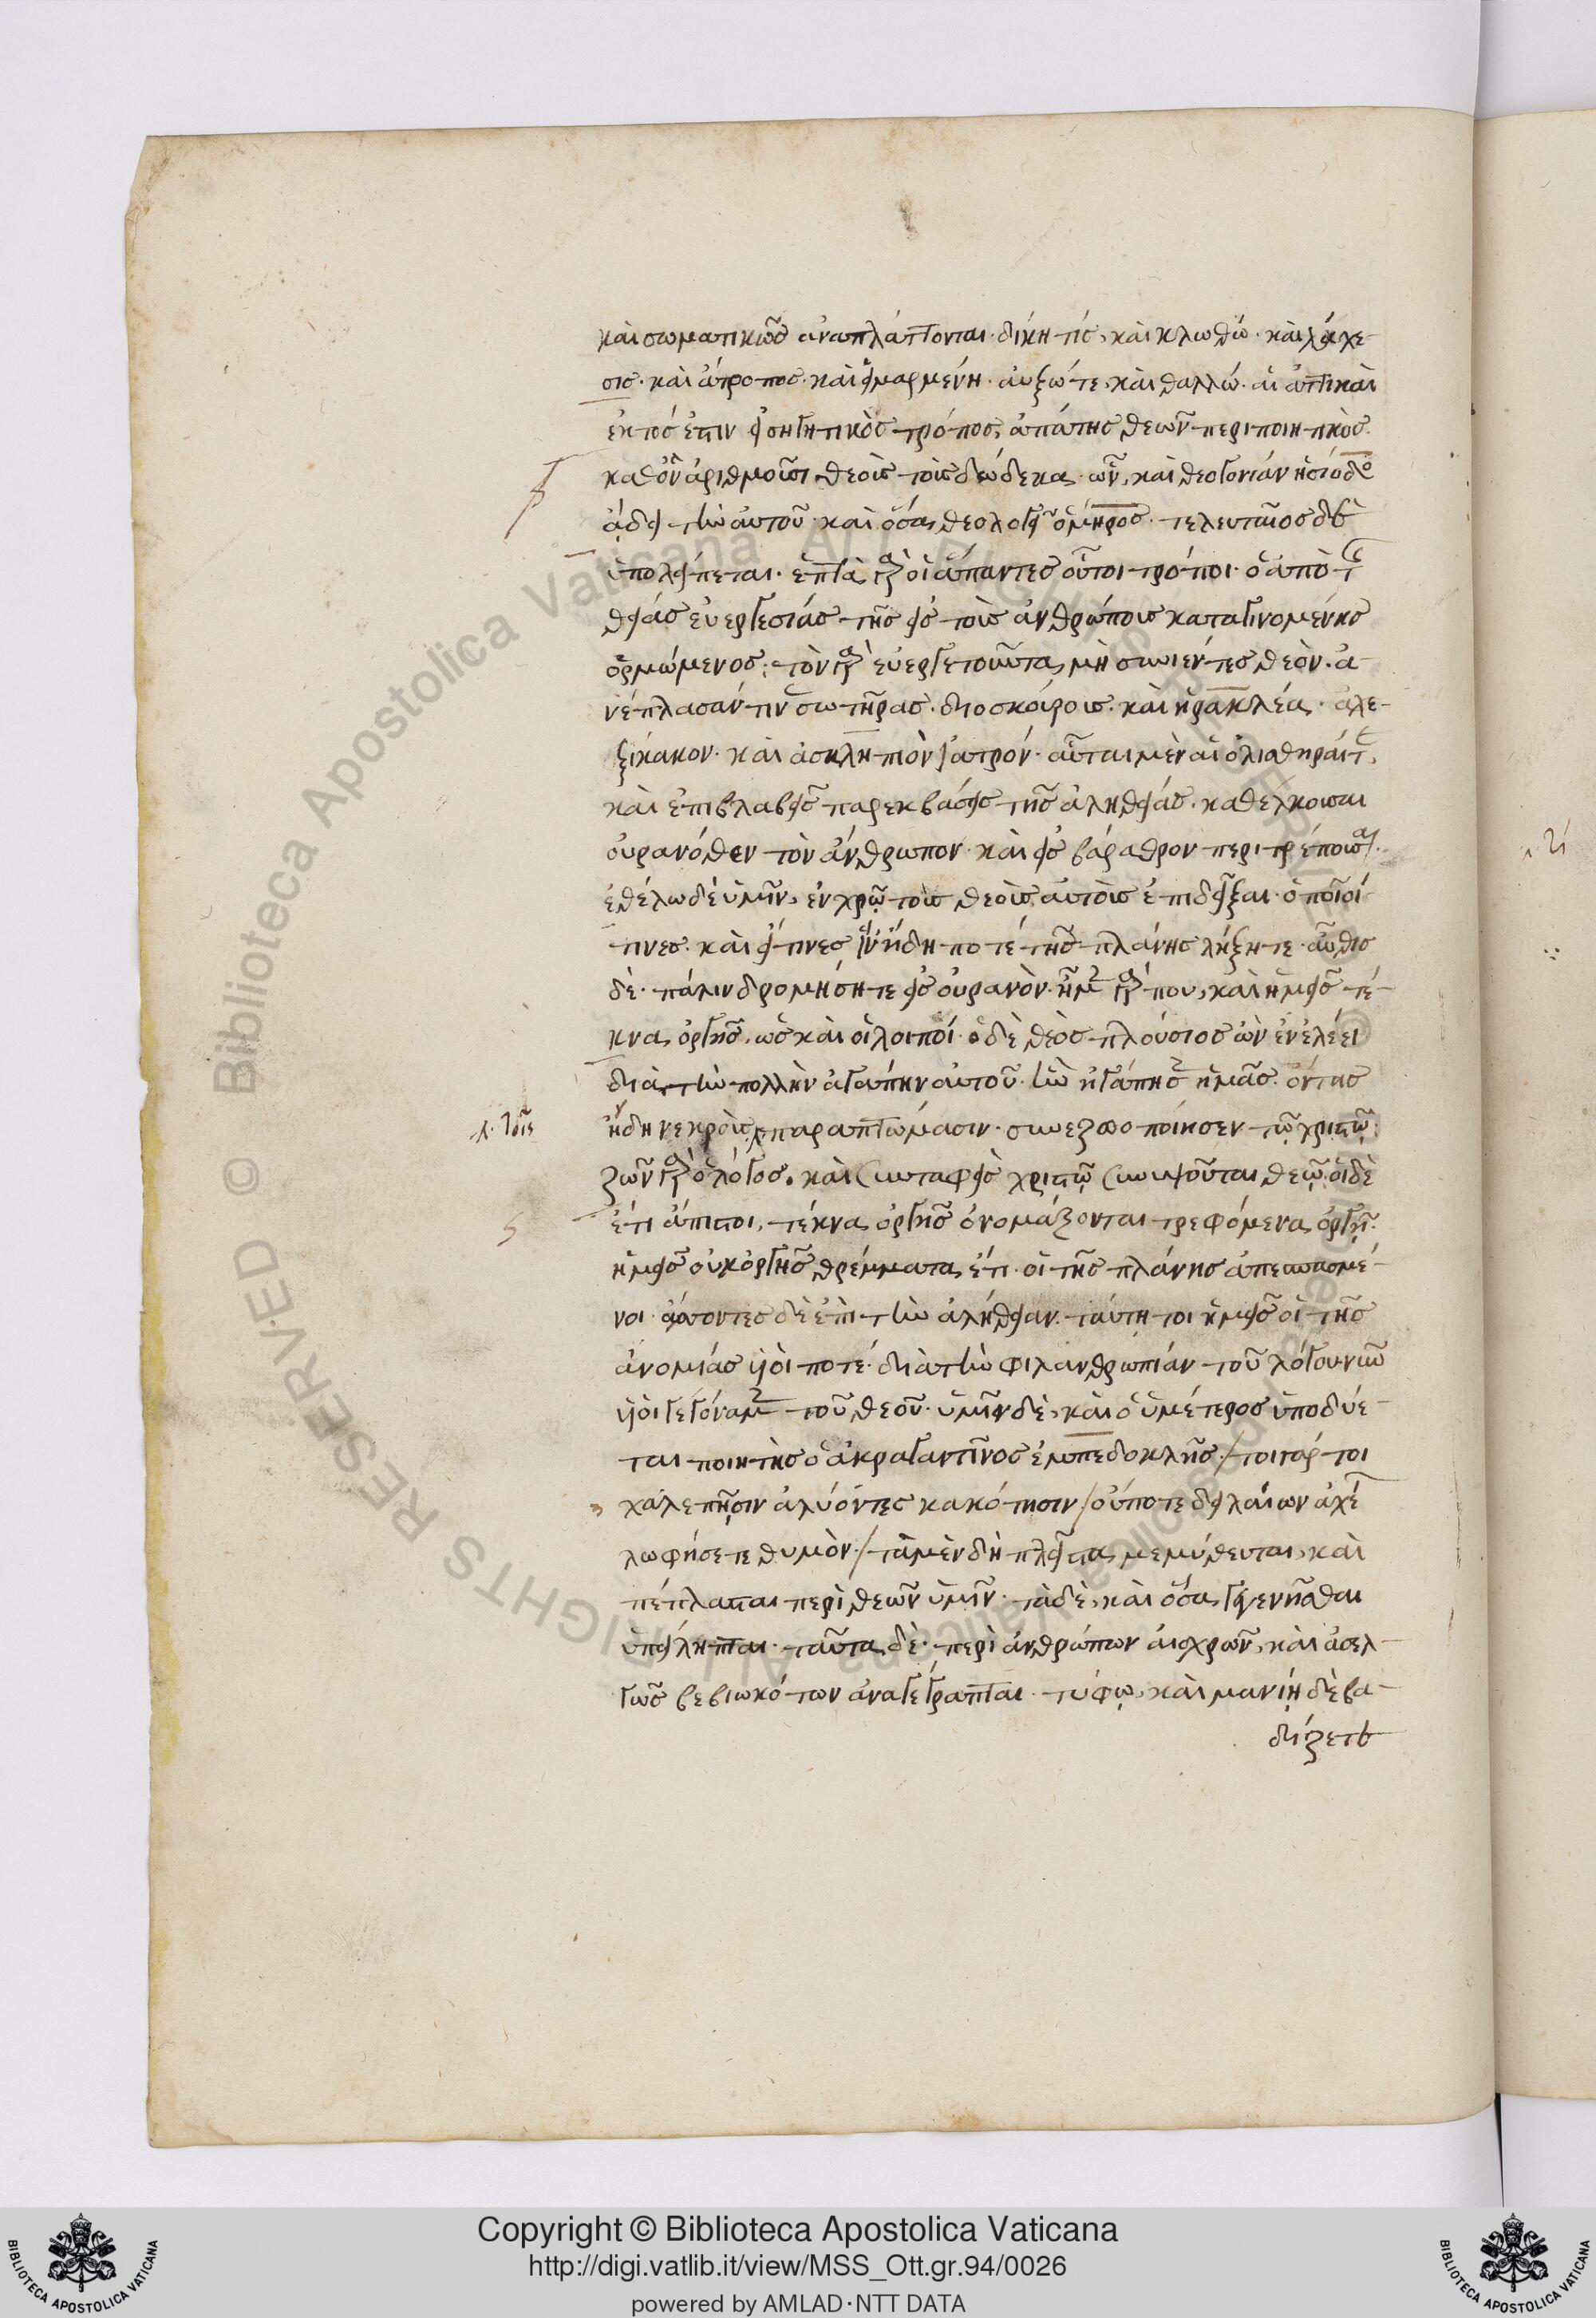 καὶ σωματικῶς ἀναπλάττονται· δίκη τίς, καὶ κλωθώ· καὶ λάχε-
σις· καὶ ἄτροπος· καὶ εἱμαρμένη· αὐξώ τε, καὶ θαλλώ· αἱ ἀττικαὶ
ἕκτός ἐστιν εἰσηγητικὸς τρόπος, ἀπάτης θεῶν περιποιητικὸς·
καθ' ὃν ἀριθμοῦσι θεοὺς τοὺς δώδεκα· ὧν, καὶ θεογονίαν ἡσίοδο
ᾄδει τὴν αὐτοῦ· καὶ ὅσα θεολογεῖ ὅμηρος· τελευταῖος δὲ
ὑπολείπεται· ἑπτὰ γὰρ οἱ ἅπαντες οὗτοι τρόποι· ὁ ἀπὸ τῆς
θείας εὐεργεσίας τῆς εἰς τοὺς ἀνθρώπους καταγινομένης
ὁρμώμενος· τὸν γὰρ εὐεργετοῦντα μὴ συνιέντες θεὸν· ἀ-
νέπλασάν τινας σωτῆρας· διοσκούρους· καὶ ἡρακλέα· ἀλε-
ξίκακον· καὶ ἀσκληπιὸν ἰατρόν· αὗται μὲν αἱ ὀλισθηραί τε
καὶ ἐπιβλαβεῖς παρεκβάσεις τῆς ἀληθείας· καθέλκουσαι
οὐρανόθεν τὸν ἄνθρωπον· καὶ εἰς βάραθρον περιτρέπουσαι·
ἐθέλω δὲ ὑμῖν, ἐν χρῷ τοὺς θεοὺς αὐτοὺς ἐπιδεῖξαι· ὁποῖοί
τινες· καὶ εἴ τινες ἵν' ἤδη ποτέ τῆς πλάνης λήξητε· αὖθις
δὲ· παλινδρομήσητε εἰς οὐρανὸν· ἦμεν γάρ που, καὶ ἡμεῖς τέ-
κνα ὀργῆς, ὡς καὶ οἱ λοιποί· ὁ δὲ θεὸς πλούσιος ὢν ἐν ἐλέει
διὰ τὴν πολλὴν ἀγάπην αὐτοῦ· ἣν ἠγάπησεν ἡμᾶς· ὄντας
λ. τοῖς
ἤδη νεκροὺς παραπτώμασιν· συνεζωοποίησεν τῷ χριστῷ·
ζῶν γὰρ ὁ λόγος· καὶ συνταφεὶς χριστῷ συνυψοῦται θεῷ· οἱ δὲ
ἔτι ἄπιστοι, τέκνα ὀργῆς ὀνομάζονται τρεφόμενα ὀργῇ·
ἡμεῖς οὐκ ὀργῆς θρέμματα ἔτι· οἱ τῆς πλάνης ἀπεσπασμέ-
νοι· ᾄσσοντες δὲ ἐπὶ τὴν ἀλήθειαν· ταύτῃ τοι ἡμεῖς οἱ τῆς
ἀνομίας υἱοί ποτέ· διὰ τὴν φιλανθρωπίαν τοῦ λόγου νῦν
υἱοὶ γεγόναμεν τοῦ θεοῦ· ὑμῖν δὲ, καὶ ὁ ὑμέτερος ὑποδύε-
ται ποιητὴς ὁ ἀκραγαντῖνος ἐμπεδοκλῆς· / τοιγάρ τοι
χαλεπῇσιν ἀλύοντες κακότησιν / οὔποτε δειλαίων ἀχέ
λωφήσετε θυμὸν· / τὰ μὲν δὴ πλεῖστα μεμύθευται, καὶ
πέπλασται περὶ θεῶν ὑμῖν· τὰ δὲ, καὶ ὅσα γεγενῆσθαι
ὑπείληπται· ταῦτα δὲ· περὶ ἀνθρώπων αἰσχρῶν, καὶ ἀσελ-
γῶς βεβιωκότων ἀναγέγραπται· τύφῳ, καὶ μανίῃ δὲ βα-
δίζετε